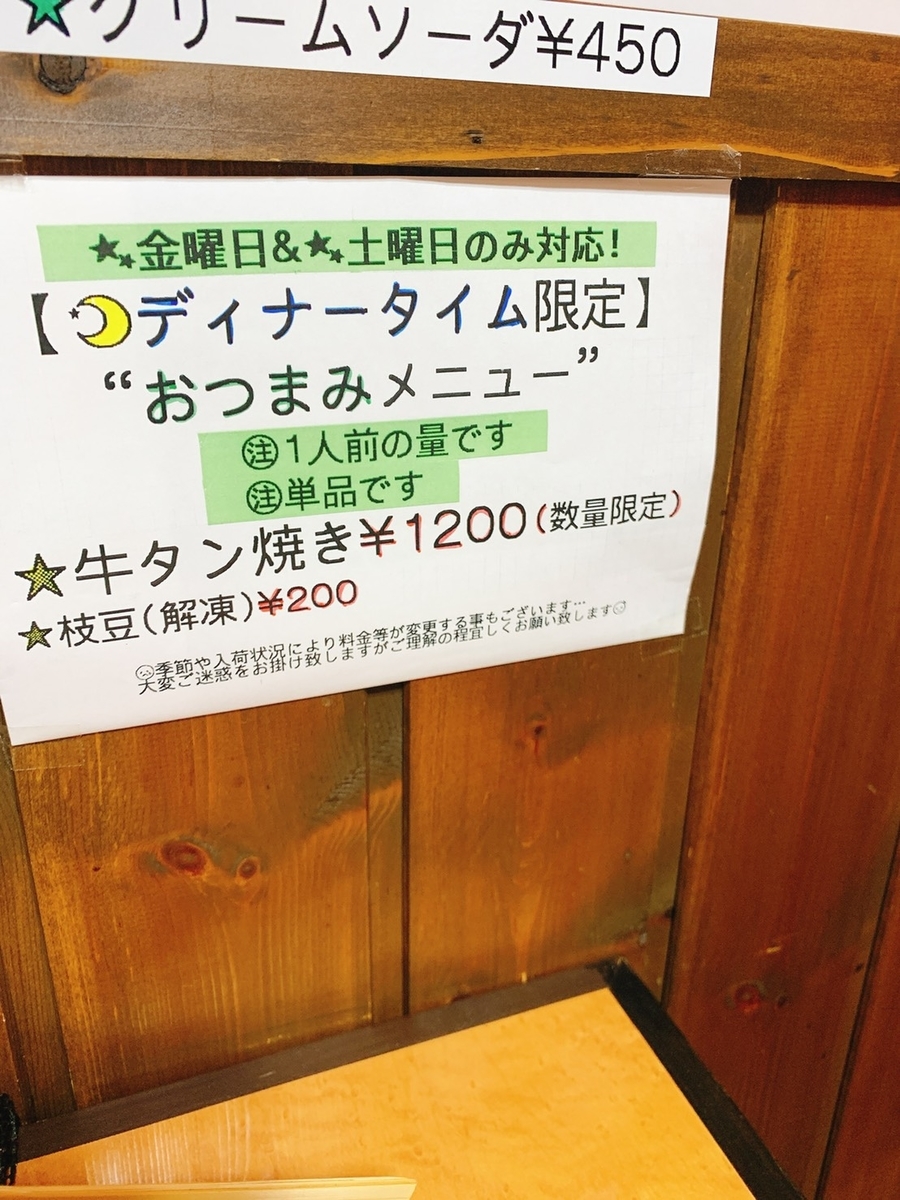 ★クリームソーダ¥450
★★金曜日&★★土曜日のみ対応!
【ディナータイム限定】
“おつまみメニュー”
㊟1人前の量です
㊟単品です
★牛タン焼き¥1200(数量限定)
★枝豆(解凍)¥200
季節や入荷状況により料金等が変更する事もございます…
大変ご迷惑をお掛け致しますがご理解の程宜しくお願い致します